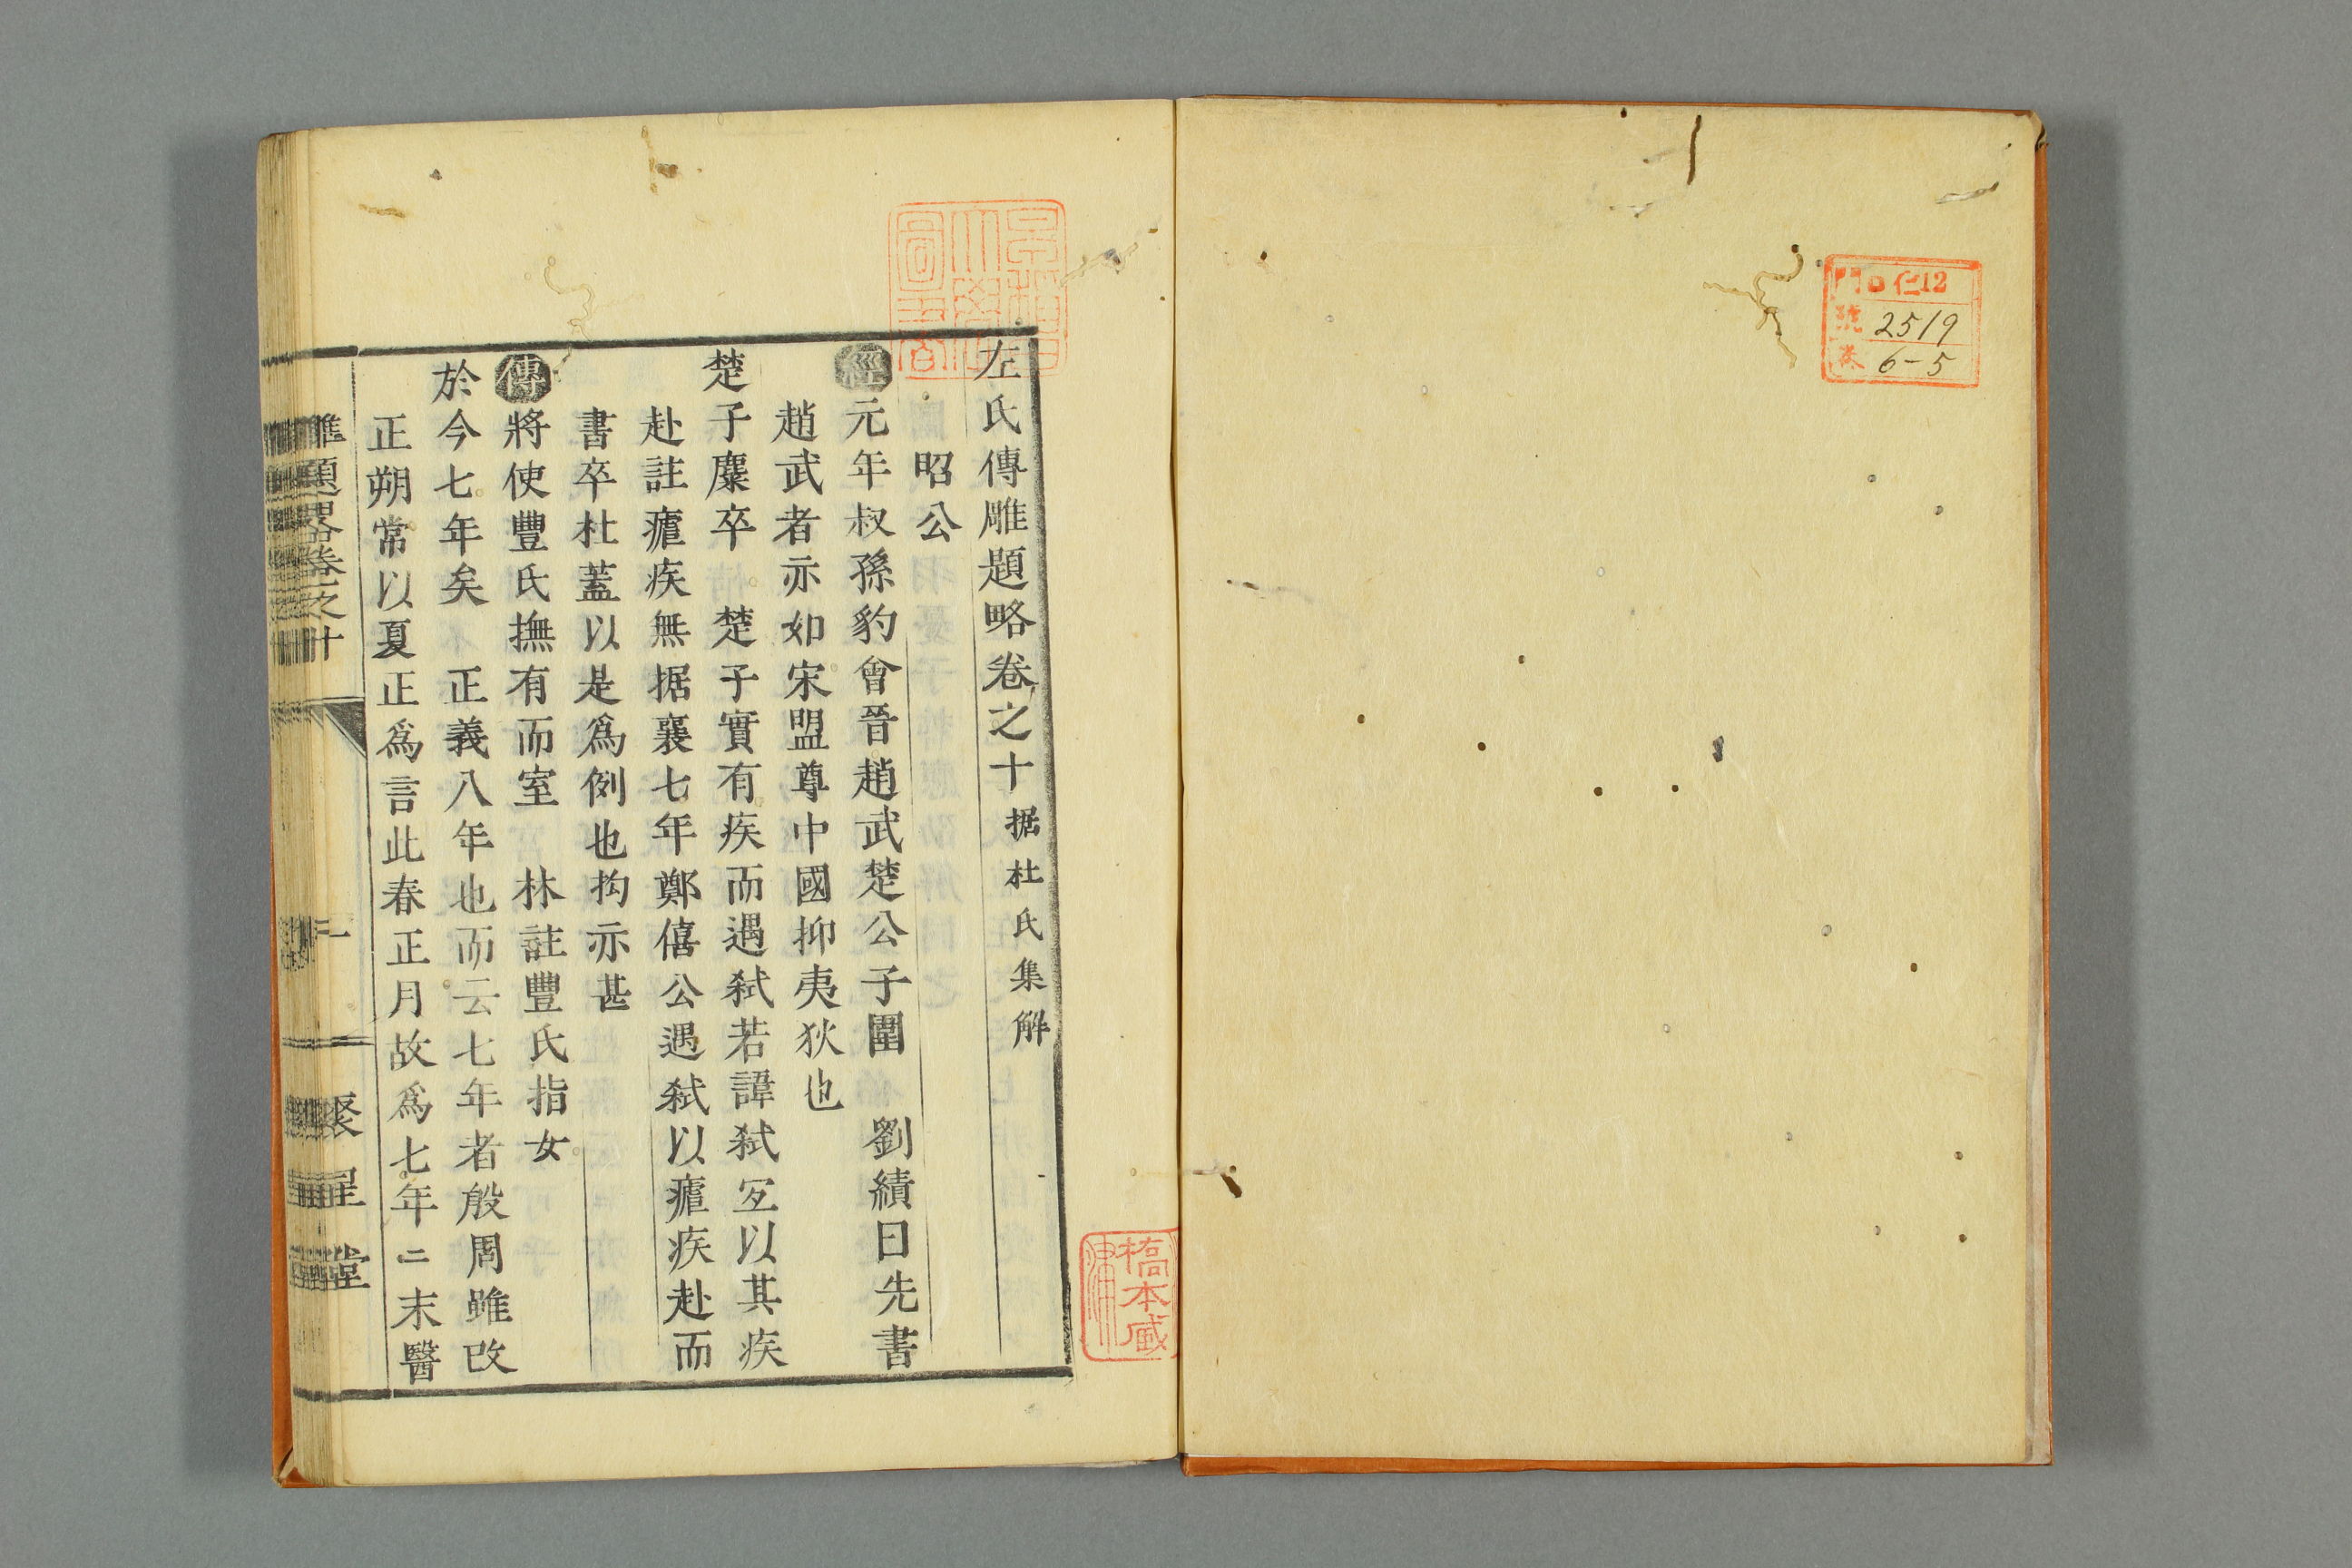 門 口仁12
號 2519
卷 6-5
左氏傳雕題略卷之十 据杜氏集解
昭公
經元年叔孫豹會晉趙武楚公子圍 劉績曰先書
趙武者亦如宋盟尊中國抑夷狄也
楚子麇卒 楚子實有疾而遇弑若諱弑宐以其疾
赴註瘧疾無据襄七年鄭僖公遇弑以瘧疾赴而
書卒杜蓋以是爲例也拘亦甚
傳將使豐氏撫有而室 林註豐氏指女
於今七年矣 正義八年也而云七年者殷周雖改
正朔常以夏正爲言此春正月故爲七年二末醫
雕題略卷之十
聚星堂
橋本藏